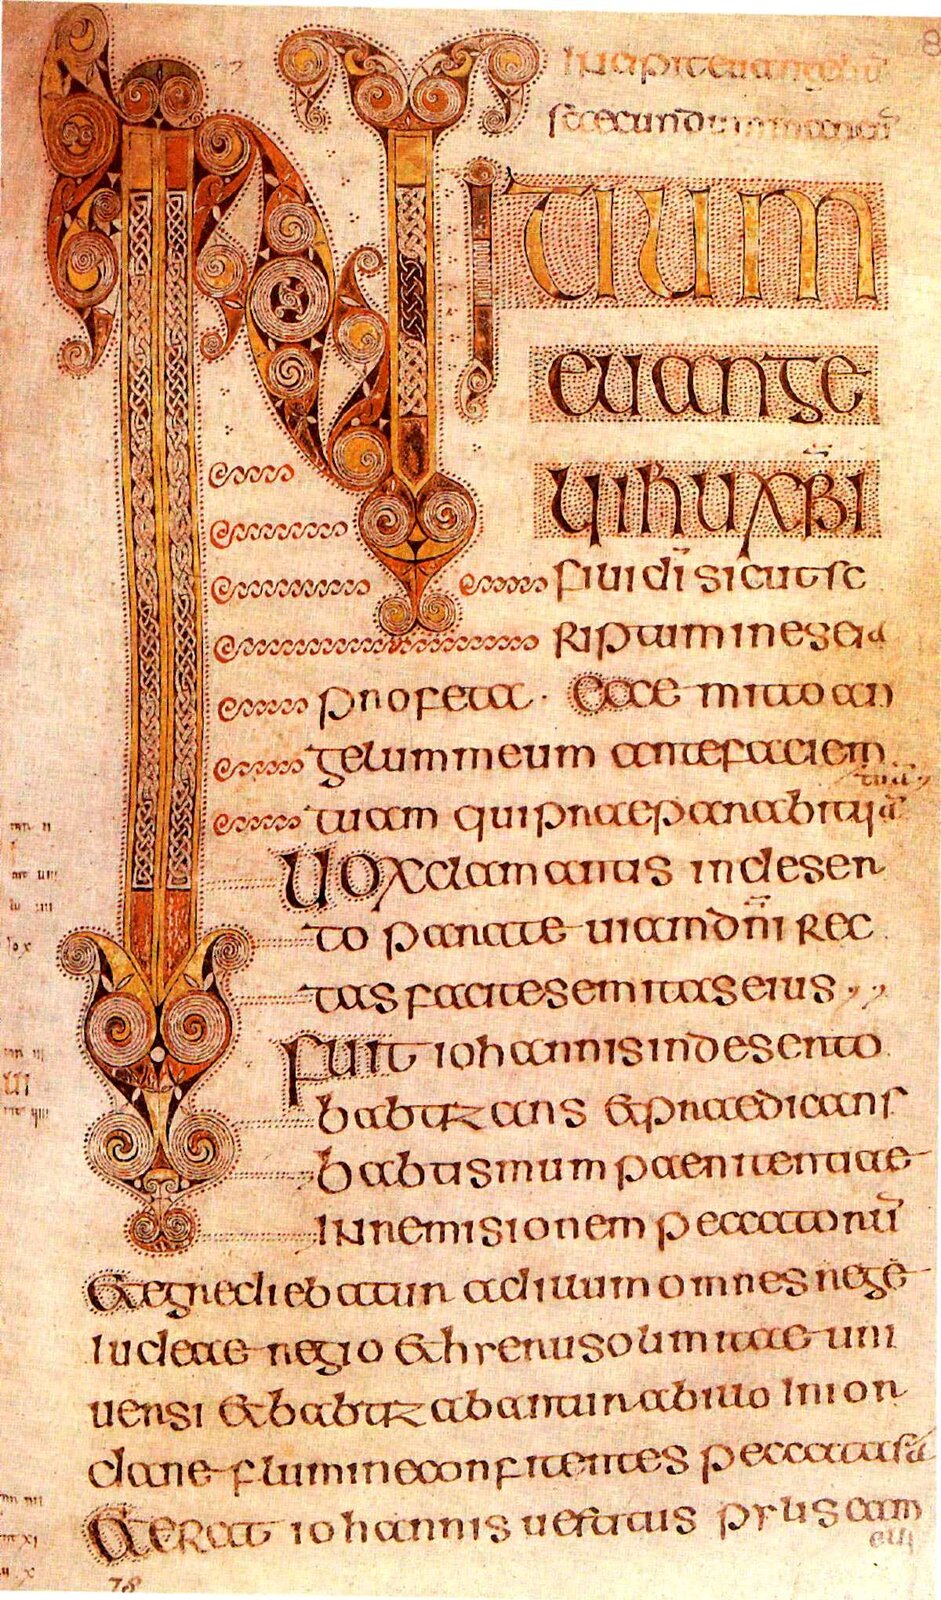 Incipit euangeliū
secundum marcū
INITIUM
euange
lii ihu xp̄i
filii dī sicut sc
riptum in eseia
profeta · Ecce mitto an
gelum meum ante faciem
tuam qui praeparabit uiā
tuā
Uox clamantis in deser
to parate uiam dn̄i rec
tas facite semitas eius ,,
Fuit iohannis in deserto
babtizans & praedicans
babtismum paenitentiae
in remisionem peccatorū
& egrediebatur ad illum omnes regē
iudeae regio & hyerusolimitae uni
uersi & babtizabantur ab illo in ior
dane flumine confitentes peccata sā
& erat iohannis uestitus pylis cam
elli
78